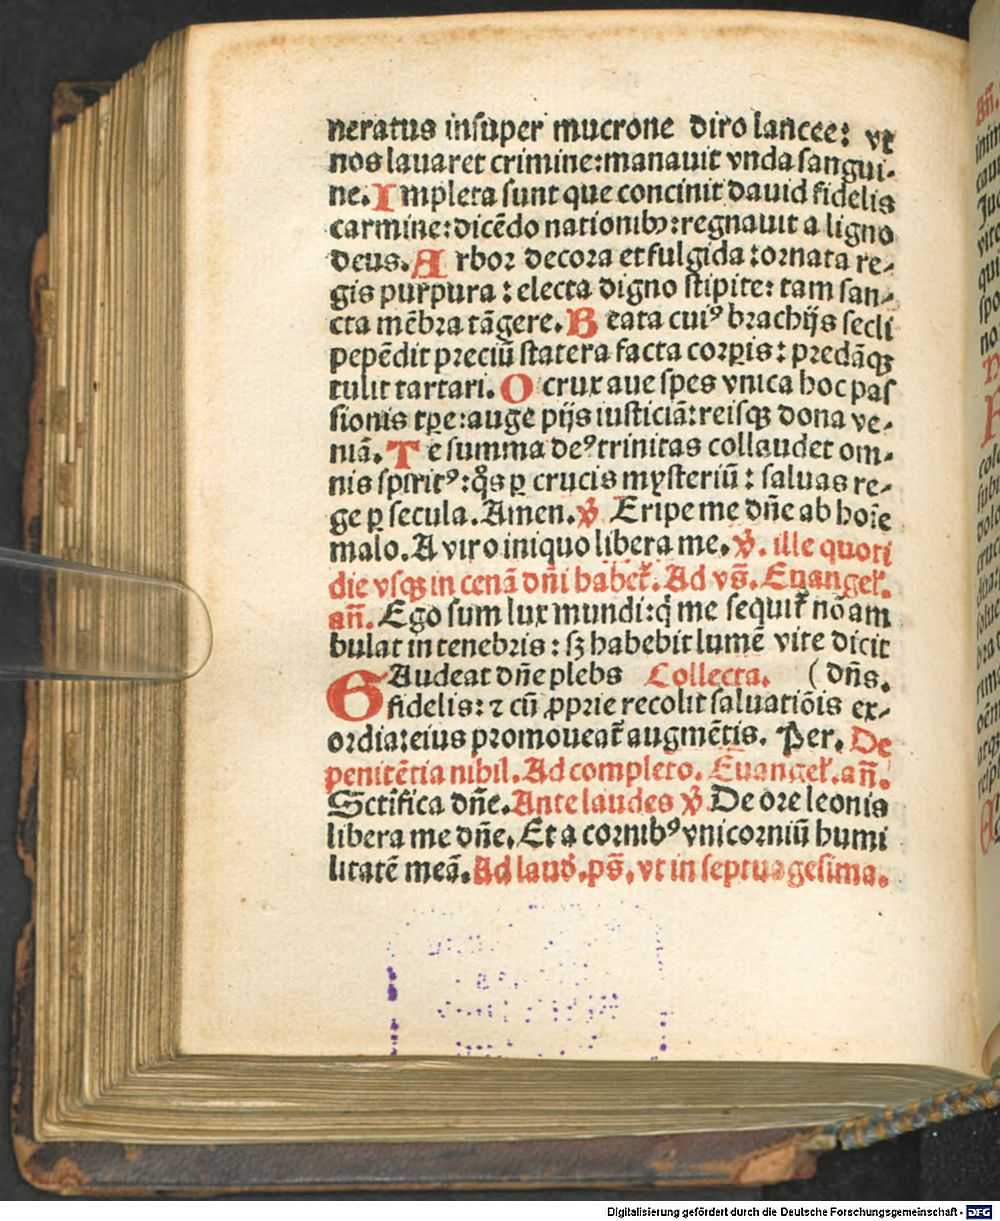 neratus insuper mucrone diro lancee: vt
nos lauaret crimine: manauit vnda sangui-
ne. Impleta sunt que concinit dauid fidelis
carmine: dicēdo nationibꝰ: regnauit a ligno
deus. Arbor decora et fulgida: ornata re-
gis purpura: electa digno stipite: tam san-
cta mēbra tāgere. Beata cuiꝰ brachijs secli
pepēdit preciū statera facta corꝑis: predāqꝫ
tulit tartari. O crux aue spes vnica hoc pas
sionis tꝑe: auge pijs iusticiā: reisqꝫ dona ve-
niā. Te summa deꝰ trinitas collaudet om-
nis spiritꝰ: qͦs ꝑ crucis mysteriū: saluas re-
ge ꝑ secula. Amen. ℣ Eripe me dn̄e ab hoīe
malo. A viro iniquo libera me. ℣. ille quoti
die vsqꝫ in cenā dn̄i habet᷑. Ad vs̄. Euangel᷑.
an̄. Ego sum lux mundi: q̇ me sequit᷑ nō am
bulat in tenebris: sꝫ habebit lumē vite dicit
Gaudeat dn̄e plebs Collecta. ( dn̄s.
fidelis: ⁊ cū ꝓprie recolit saluatiōis ex-
ordia: eius promoueat᷑ augmētis. Per. De
penitētia nihil. Ad completo. Euangel᷑. an̄.
Sctīfica dn̄e. Ante laudes ℣ De ore leonis
libera me dn̄e. Et a cornibꝰ vnicorniū humi
litatē meā. Ad laud̓. ps̄. vt in septuagesima.
Digitalisierung gefördert durch die Deutsche Forschungsgemeinschaft - DFG